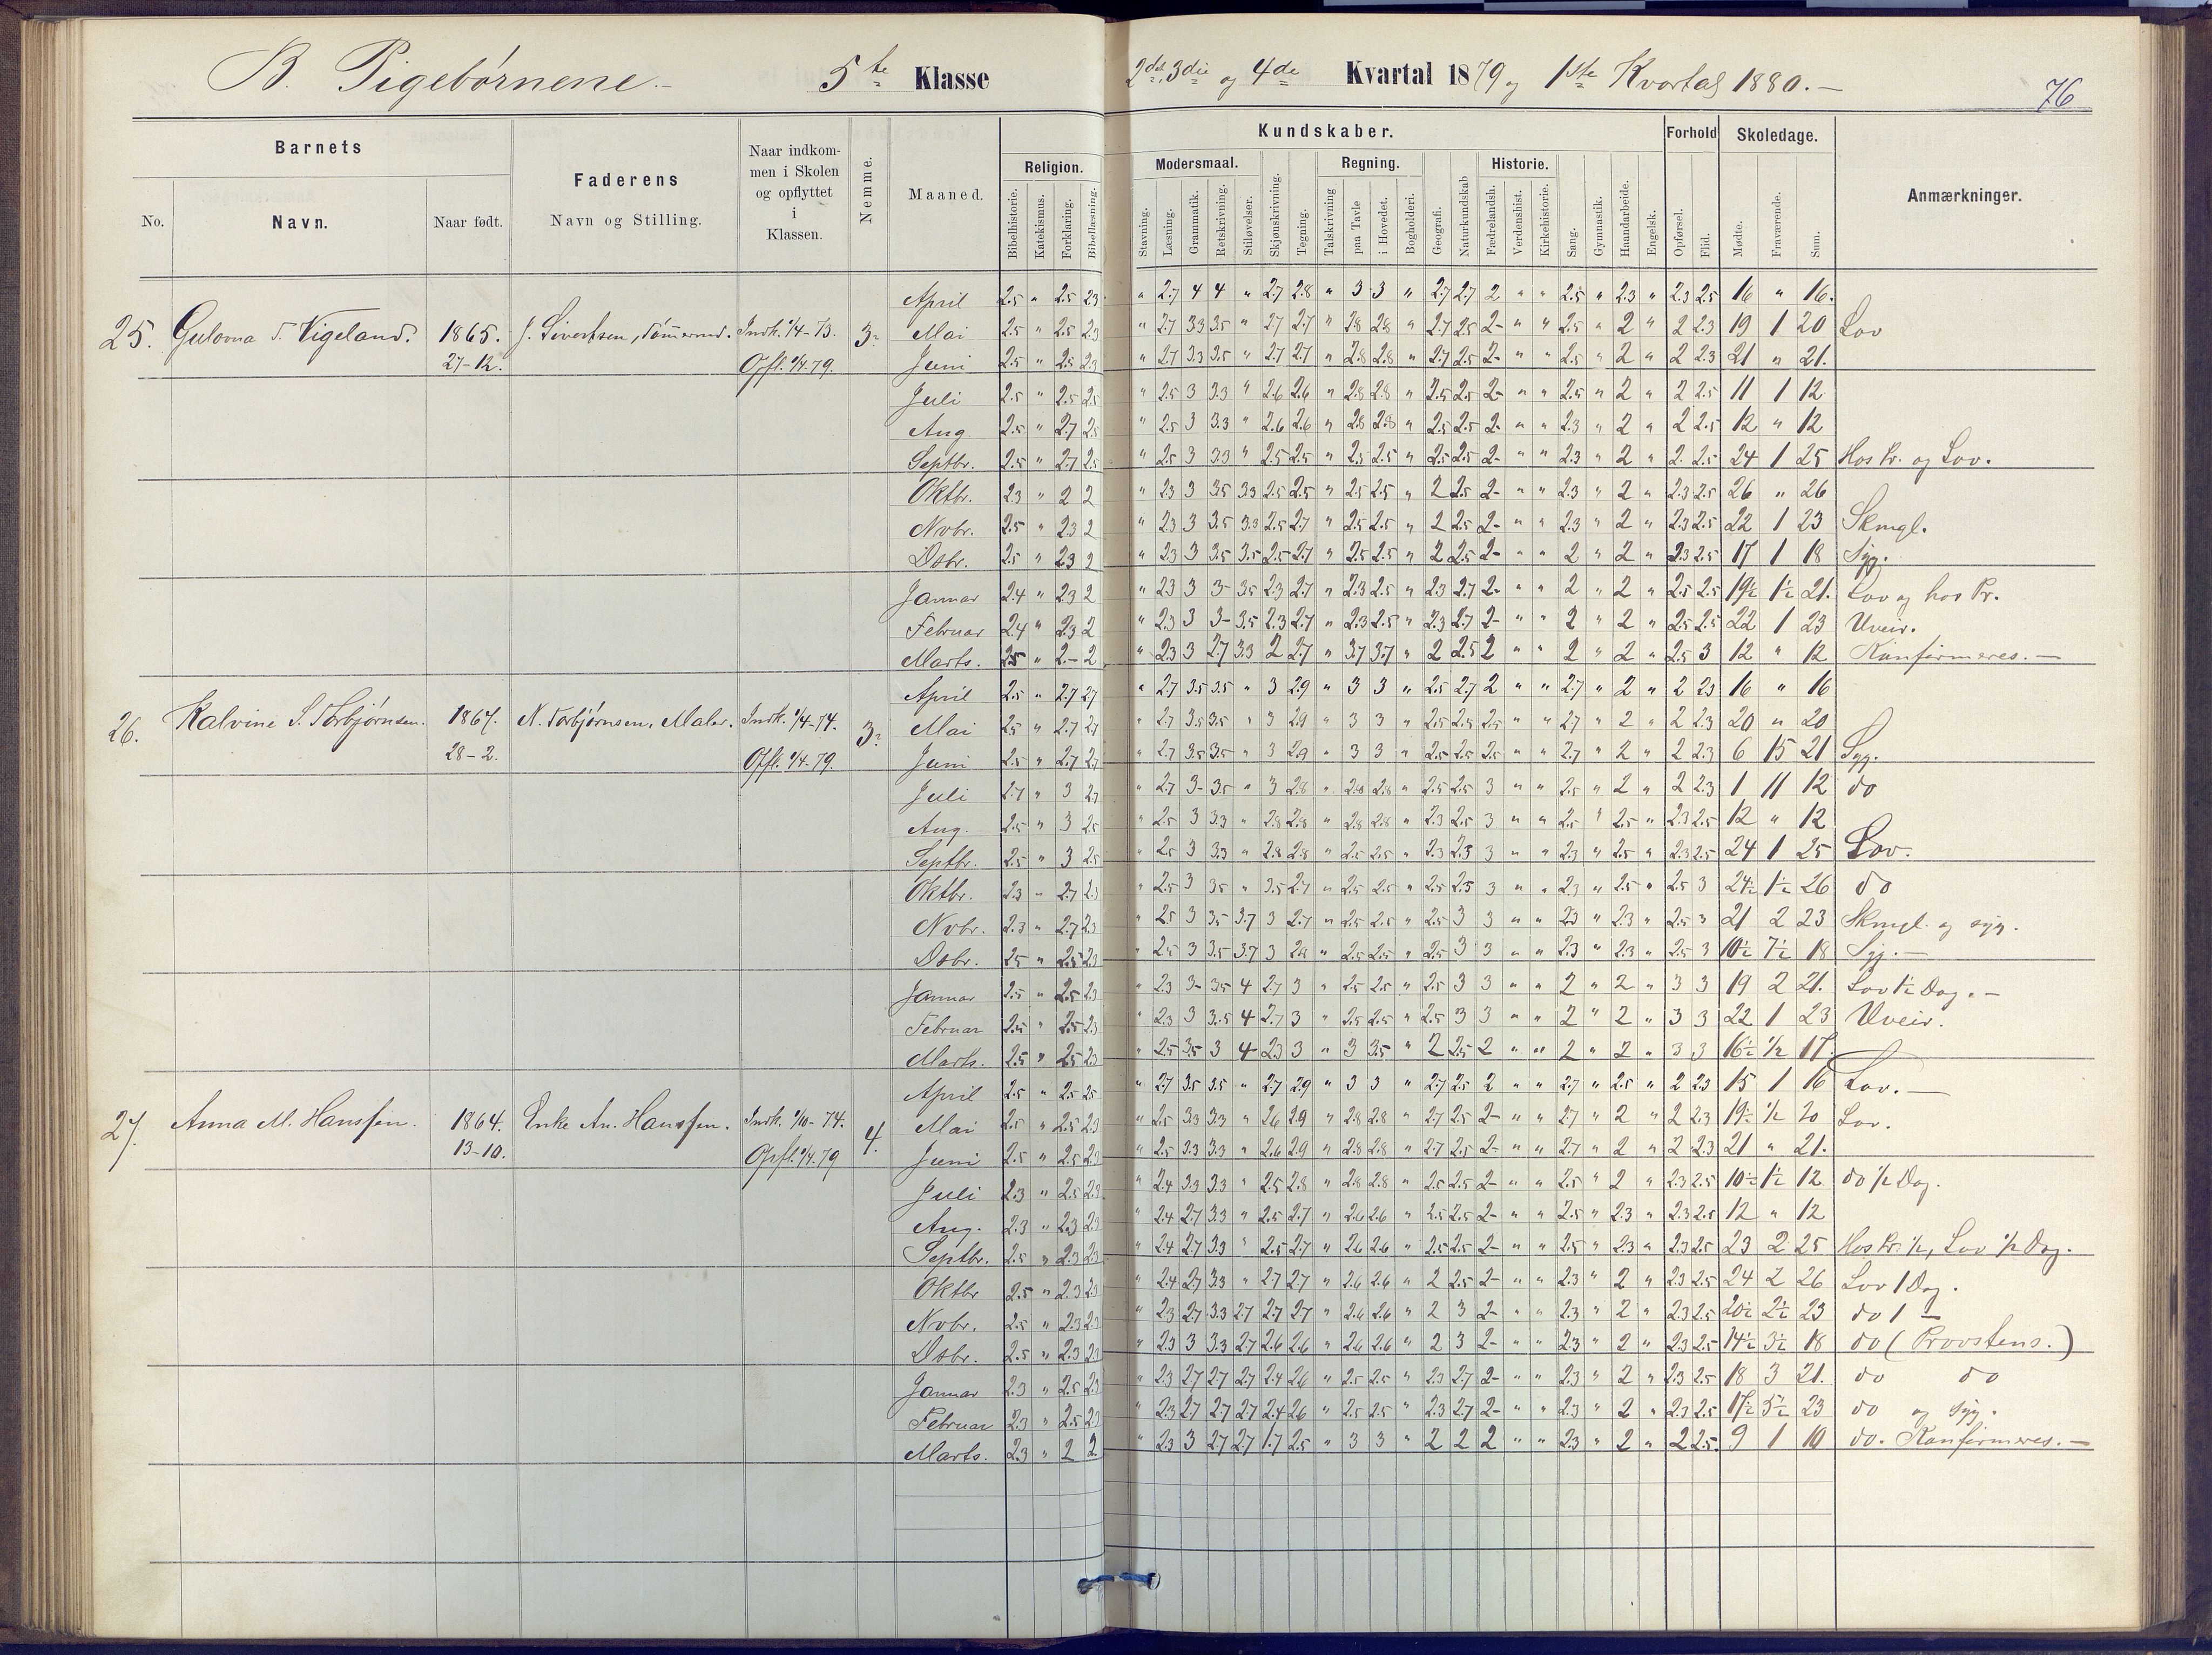 B. Pigebørnene.- 5te Klasse 2det, 3die og 4de Kvartal 1879 og 1ste Kvartal 1880.-
76
Barnets
Faderens
Naar indkommen i Skolen og opflyttet i Klassen.
Nemme.
Maaned.
Kundskaber.
Forhold
Skoledage.
Anmærkninger.
No. Navn. Naar født. Navn og Stilling.
Religion. Modersmaal. Regning. Historie.
Bibelhistorie. Katekismus. Forklaring. Bibellæsning. Stavning. Læsning. Grammatik. Retskrivning. Stiløvelser. Skjønskrivning. Tegning. Talskrivning paa Tavle i Hovedet. Bogholderi. Geografi. Naturkundskab Fædrelandsh. Verdenshist. Kirkehistorie. Sang. Gymnastik. Haandarbeide. Engelsk. Opførsel. Flid. Mødte. Fraværende. Sum.
April 2.5 " 2.5 2.3 " 2.7 4 4 " 2.7 2.8 " 3 3 " 2.7 2.7 2 " " 2.5 " 2.3 " 2.3 2.5 16 " 16.
25. Gulona T. Vigeland. 1865. J. Sivertsen, Tømmermd. Indk. 1/4-73. 3- Mai 2.5 " 2.5 2.3 " 2.7 3.3 3.5 " 2.7 2.7 " 2.8 2.8 " 2.7 2.5 2- " " 2.5 " 2 " 2 2.3 19 1 20 Lov
27-12. Opfl. 1/4.79. Juni 2.5 " 2.5 2.3 " 2.7 3.3 3.5 " 2.7 2.7 " 2.8 2.8 " 2.7 2.5 2- " " 2.5 " 2 " 2 2.3 21 " 21.
Juli 2.5 " 2.5 2.5 " 2.5 3 3.3 " 2.6 2.6 " 2.8 2.8 " 2.5 2.5 2- " " 2.5 " 2 " 2 2.5 11 1 12
Aug. 2.5 " 2.7 2.5 " 2.5 3 3.3 " 2.6 2.6 " 2.8 2.8 " 2.5 2.5 2- " " 2.3 " 2 " 2 2.5 12 " 12
Septbr. 2.5 " 2.7 2.5 " 2.5 3 3.3 " 2.5 2.5 " 2.5 2.5 " 2.5 2.5 2- " " 2.3 " 2 " 2. 2.5 24 1 25 Hos Pr. og Lov.
Oktbr. 2.3 " 2 2 " 2.3 3 3.5 3.3 2.5 2.5 " 2.5 2.5 " 2 2.5 2- " " 2.3 " 2 " 2.3 2.5 26 " 26
Novbr. 2.5 " 2.3 2 " 2.3 3 3.5 3.3 2.5 2.7 " 2.5 2.5 " 2 2.5 2- " " 2.3 " 2 " 2.3 2.5 22 1 23 Skmgl.
Dsbr. 2.5 " 2.3 2 " 2.3 3 3.5 3.5 2.5 2.7 " 2.5 2.5 " 2 2.5 2- " " 2 " 2 " 2.3 2.5 17 1 18 Syg.
Januar 2.4 " 2.3 2 " 2.3 3 3- 3.5 2.3 2.7 " 2.3 2.5 " 2.3 2.7 2- " " 2 " 2 " 2.5 2.5 19½ 1½ 21. Lov og hos Pr.
Februar 2.4 " 2.3 2 " 2.3 3 3- 3.5 2.3 2.7 " 2.3 2.5 " 2.3 2.7 2- " " 2 " 2 " 2.5 2.5 22 1 23 Uveir.
Marts. 2.5 " 2.- 2 " 2.3 3 2.7 3.3 2 2.7 " 3.7 3.7 " 2 2.5 2 " " 2 " 2 " 2.5 3 12 " 12 Konfirmeres.-
April 2.5 " 2.7 2.7 " 2.7 3.5 3.5 " 3 2.9 " 3 3 " 2.5 2.7 2 " " 2.7 " 2 " 2 2.3 16 " 16
26. Kalvine S. Torbjørnsen. 1867. N. Torbjørnsen, Maler. Indk. 1/4-74. 3- Mai 2.5 " 2.7 2.7 " 2.7 3.5 3.5 " 3 2.9 " 3 3 " 2.5 2.5 2.5 " " 2.7 " 2 " 2 2.3 20 " 20
28-2. Opfl. 1/4-79. Juni 2.5 " 2.7 2.7 " 2.7 3.5 3.5 " 3 2.9 " 3 3 " 2.5 2.5 2.5 " " 2.7 " 2 " 2 2.3 6 15 21 Syg.
Juli 2.7 " 3 2.7 " 2.7 3- 3.5 " 3 2.8 " 2.8 2.8 " 2.5 2.5 3 " " 2.5 " 2 " 2 2.3 1 11 12 do
Aug. 2.5 " 3 2.5 " 2.5 3 3.3 " 2.8 2.8 " 2.8 2.8 " 2.3 2.5 3 " " 2.5 " 2.5 " 2.3 2.5 12 " 12
Septbr. 2.5 " 3 2.5 " 2.5 3 3.3 " 2.8 2.8 " 2.5 2.5 " 2.3 2.3 3 " " 2.3 " 2.5 " 2.3 2.5 24 1 25 Lov.
Oktbr. 2.3 " 2.7 2.3 " 2.5 3 3.5 " 3.5 2.7 " 2.5 2.5 " 2.5 2.5 3 " " 2.3 " 2.5 " 2.5 3 24½ 1½ 26 do
Novbr. 2.3 " 2.7 2.3 " 2.5 3 3.5 3.7 3 2.7 " 2.5 2.5 " 2.5 3 3 " " 2.3 " 2.3 " 2.5 3 21 2 23 Skmgl. og syg.
Dsbr. 2.5 " 2.5 2.3 " 2.5 3 3.5 3.7 3 2.8 " 2.5 2.5 " 2.5 3 3 " " 2.3 " 2.3 " 2.5 3 10½ 7½ 18 Syg.-
Januar 2.5 " 2.5 2.3 " 2.3 3- 3.5 4 2.7 3 " 2.5 2.5 " 2.5 3 3 " " 2 " 2 " 3 3 19 2 21. Lov 1½ Dag.-
Februar 2.5 " 2.5 2.3 " 2.3 3 3.5 4 2.7 3 " 2.5 2.5 " 2.5 3 3 " " 2 " 2 " 3 3 22 1 23 Uveir.
Marts. 2.5 " 2.5 2.3 " 2.5 3.5 3 4 2.3 3 " 3 3.5 " 2 2.5 2 " " 2 " 2 " 3 3 16½ ½ 17.
April 2.5 " 2.5 2.5 " 2.7 3.5 3.5 " 2.7 2.9 " 3 3 " 2.7 2.5 2 " " 2.7 " 2.5 " 2 2.3 15 1 16 Lov.-
27. Anna M. Hanssen. 1864. Enke An. Hanssen. Indk. 1/10-74. 4. Mai 2.5 " 2.5 2.3 " 2.5 3.3 3.3 " 2.6 2.9 " 2.8 2.8 " 2.7 2.5 2- " " 2.7 " 2 " 2 2.3 19½ ½ 20 Lov.
13-10. Opfl. 1/4.79 Juni 2.5 " 2.5 2.3 " 2.5 3.3 3.3 " 2.6 2.9 " 2.8 2.8 " 2.7 2.5 2- " " 2.7 " 2 " 2 2.3 21 " 21.
Juli 2.3 " 2.5 2.3 " 2.4 3.3 3.3 " 2.5 2.8 " 2.8 2.8 " 2.5 2.5 2- " " 2.5 " 2 " 2.3 2.5 10½ 1½ 12 do ½ Dag.
Aug. 2.3 " 2.3 2.3 " 2.4 2.7 3.3 " 2.5 2.7 " 2.6 2.6 " 2.5 2.5 2- " " 2.5 " 2.3 " 2.3 2.5 12 " 12
Septbr. 2.5 " 2.3 2.3 " 2.4 2.7 3.3 " 2.5 2.7 " 2.6 2.6 " 2.5 2.5 2- " " 2.5 " 2.3 " 2.3 2.5 23 2 25 Hos Pr. ½, Lov ½ Dag.
Oktbr 2.5 " 2.3 2.3 " 2.4 2.7 3.3 " 2.7 2.7 " 2.6 2.6 " 2 2.5 2- " " 2.3 " 2 " 2.3 2.5 24 2 26 Lov 1 Dag.
Novbr. 2.5 " 2.3 2.3 " 2.3 2.7 3.3 2.7 2.7 2.7 " 2.6 2.6 " 2 3 2- " " 2.3 " 2 " 2.3 2.5 20½ 2½ 23 do 1 -
Dsbr. 2.5 " 2.3 2.3 " 2.3 3 3.3 2.7 2.6 2.6 " 2.6 2.6 " 2 3 2- " " 2.3 " 2 " 2.3 2.5 14½ 3½ 18 do (Provstens.)
Januar 2.3 " 2.5 2.3 " 2.3 2.7 2.7 2.7 2.4 2.6 " 2.5 2.5 " 2.3 2.7 2- " " 2.3 " 2 " 2.3 2.5 18 3 21. do do
Februar 2.3 " 2.5 2.3 " 2.3 2.7 2.7 2.7 2.4 2.6 " 2.5 2.5 " 2.3 2.7 2- " " 2.3 " 2 " 2.3 2.5 17½ 5½ 23 do og syg.
Marts. 2.3 " 2 2. " 2.3 3 2.7 2.7 1.7 2.5 " 3 3 " 2 2 2 " " 2.3 " 2 " 2 2.5. 9 1 10 do. Konfirmeres.-